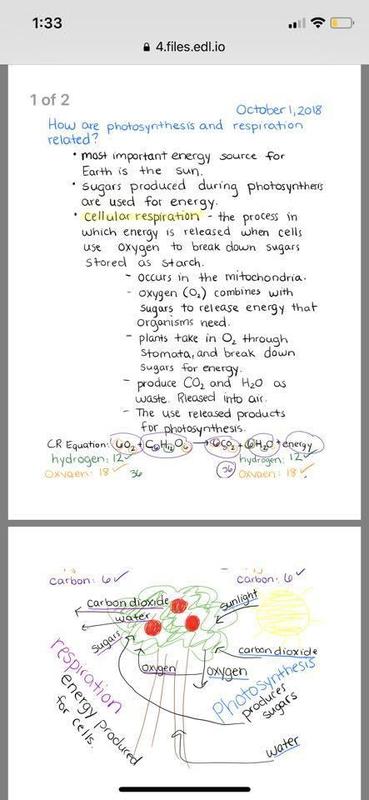 1:33
4.files.edl.io
1 of 2
October 1, 2018
How are photosynthesis and respiration
related?
• most important energy source for
Earth is the sun.
• sugars produced during photosynthesis
are used for energy.
• cellular respiration - the process in
which energy is released when cells
use oxygen to break down sugars
stored as starch.
- occurs in the mitochondria.
- oxygen (O₂) combines with
sugars to release energy that
organisms need.
- plants take in O₂ through
stomata, and break down
sugars for energy.
- produce CO₂ and H₂O as
waste. Rleased into air.
- The use released products
for photosynthesis.
CR Equation: 6O₂ + C₆H₁₂O₆ → 6CO₂ + 6H₂O + energy
hydrogen: 12 ✓ hydrogen: 12 ✓
oxygen: 18 ✓ 36 36 oxygen: 18 ✓
carbon: 6 ✓ carbon: 6 ✓
carbon dioxide sunlight
water
sugars
carbon dioxide
oxygen oxygen
respiration
energy produced
for cells.
Photosynthesis
produces
sugars
water